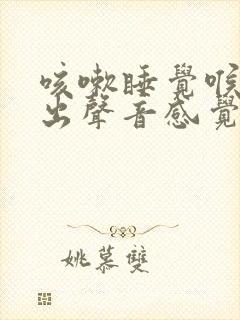 咳嗽睡覺喉
出聲音感覺
姚慕雙